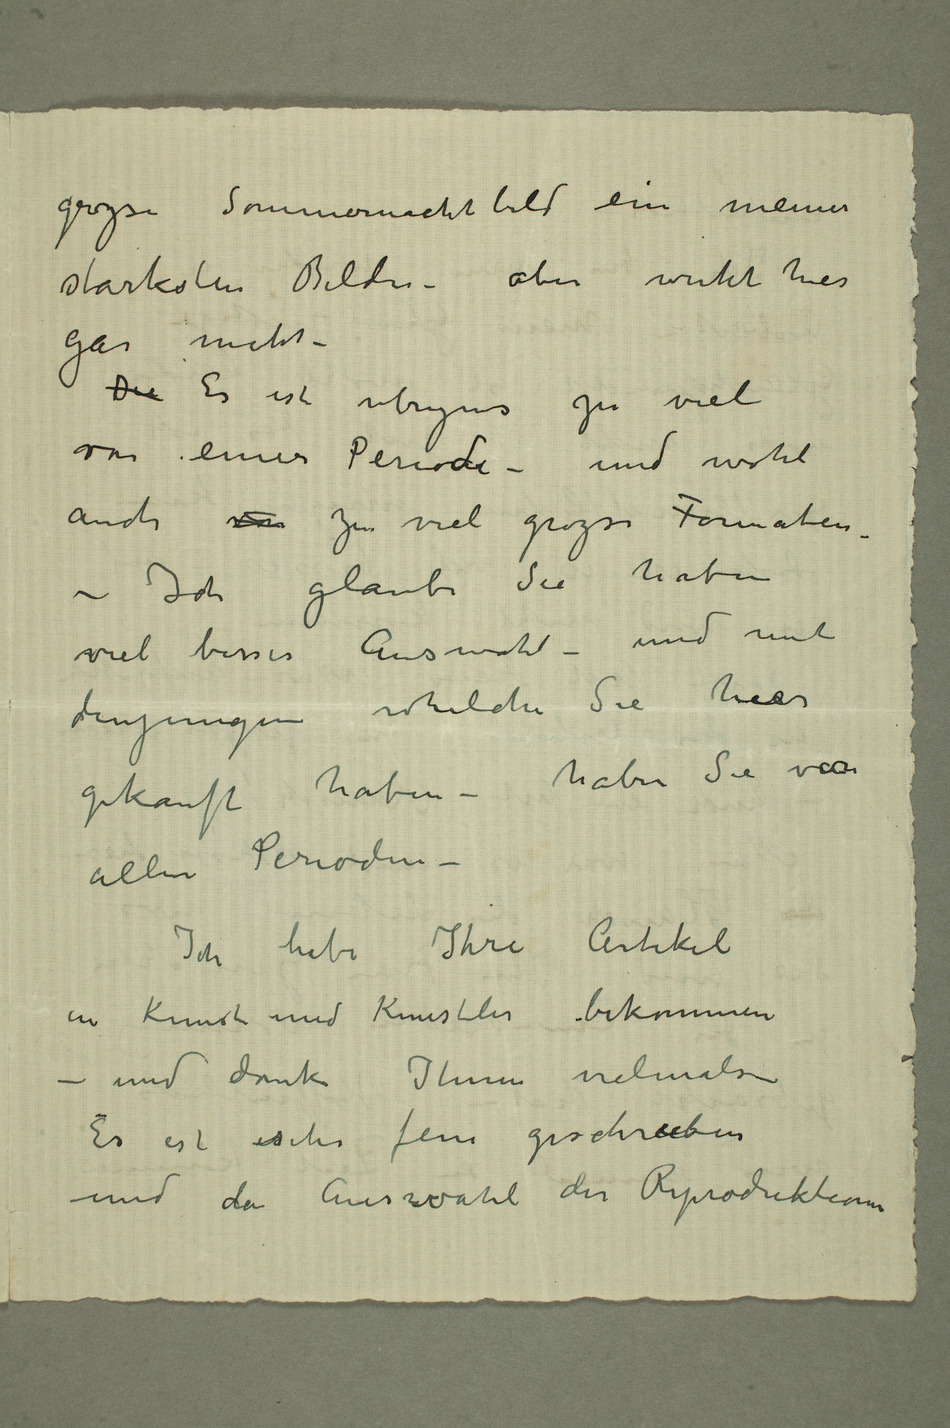 grozse Sommernachtbild ein meiner
starksten Bilder – aber wirkt hier
gar nicht –
Die Es ist ubrigens zu viel
von einer Periode – und wohl
auch von zu viel grozse Formaten –
– Ich glaube Sie haben
viel besser Auswahl – und mit
denjenigen whelche Sie hier
gekauft haben – haben Sie von
allen Perioden –
Ich habe Ihre Artikel
in Kunst und Kunstler bekommen
– und danke Ihnen vielmals –
Es ist sehr fein geschrieben
– und die Auswahl der Reproduktionen